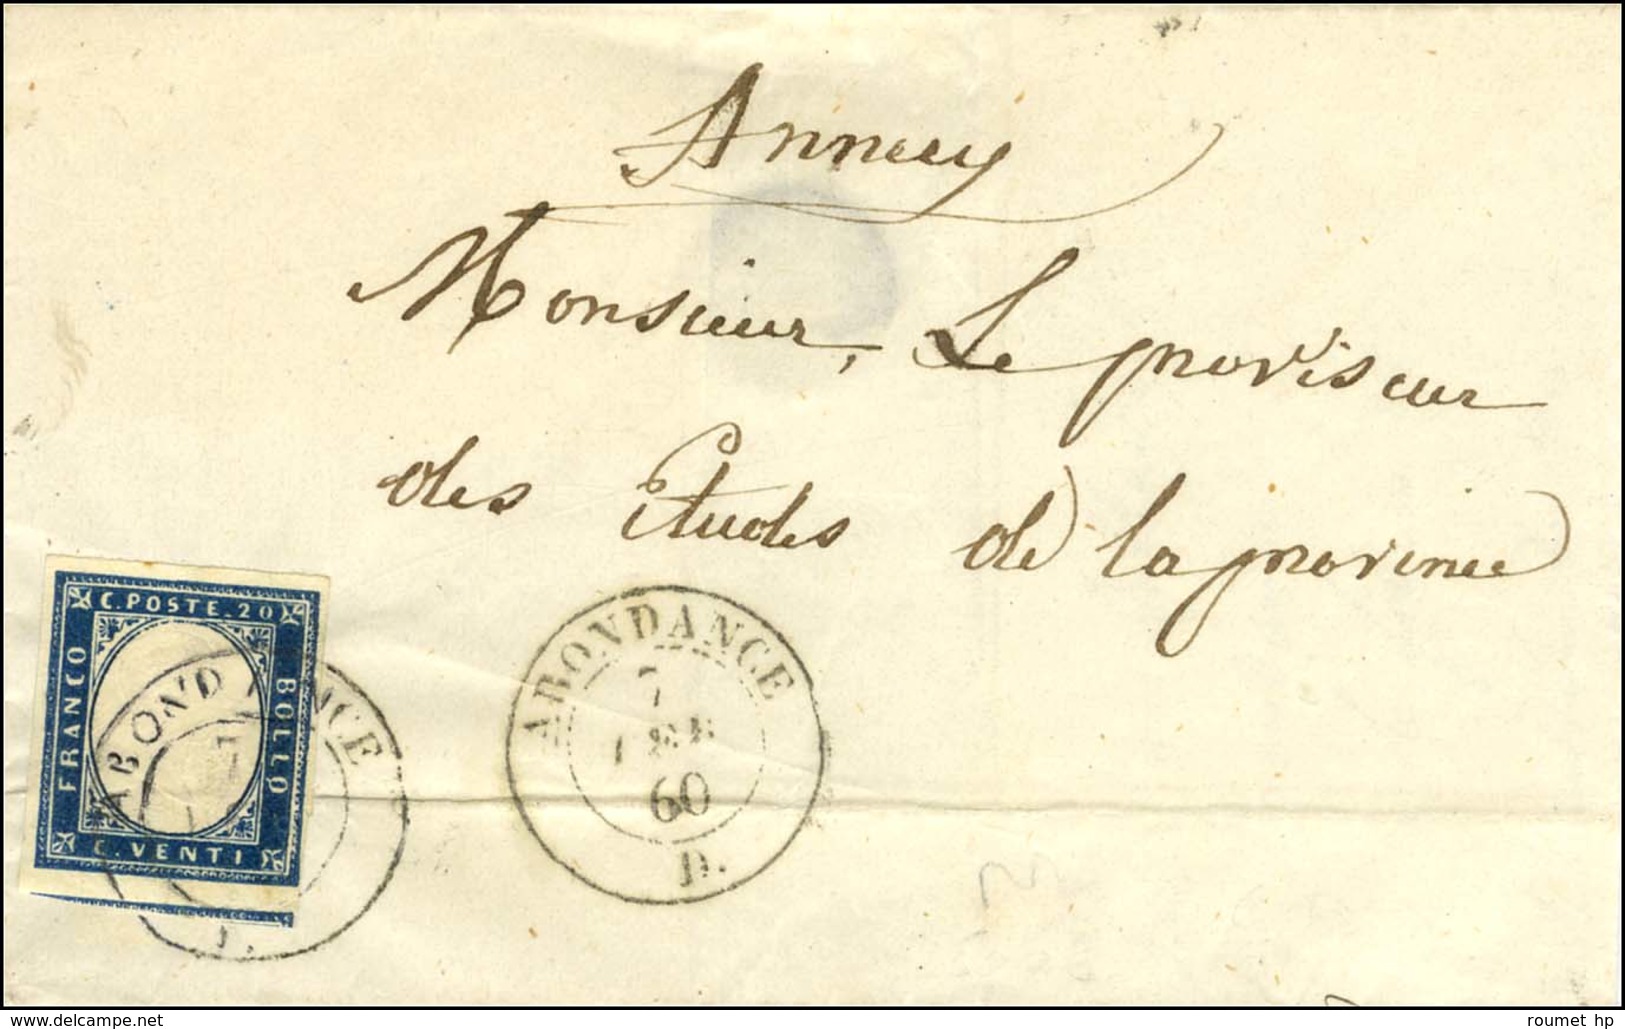 Annecy
Monsieur, Le proviseur
des Etudes de la province
C. POSTE. 20
FRANCO
BOLLO
C. VENTI
ABONDANCE
ABONDANCE
7
FEB
60
D.
www.delcampe.net
roumet hp